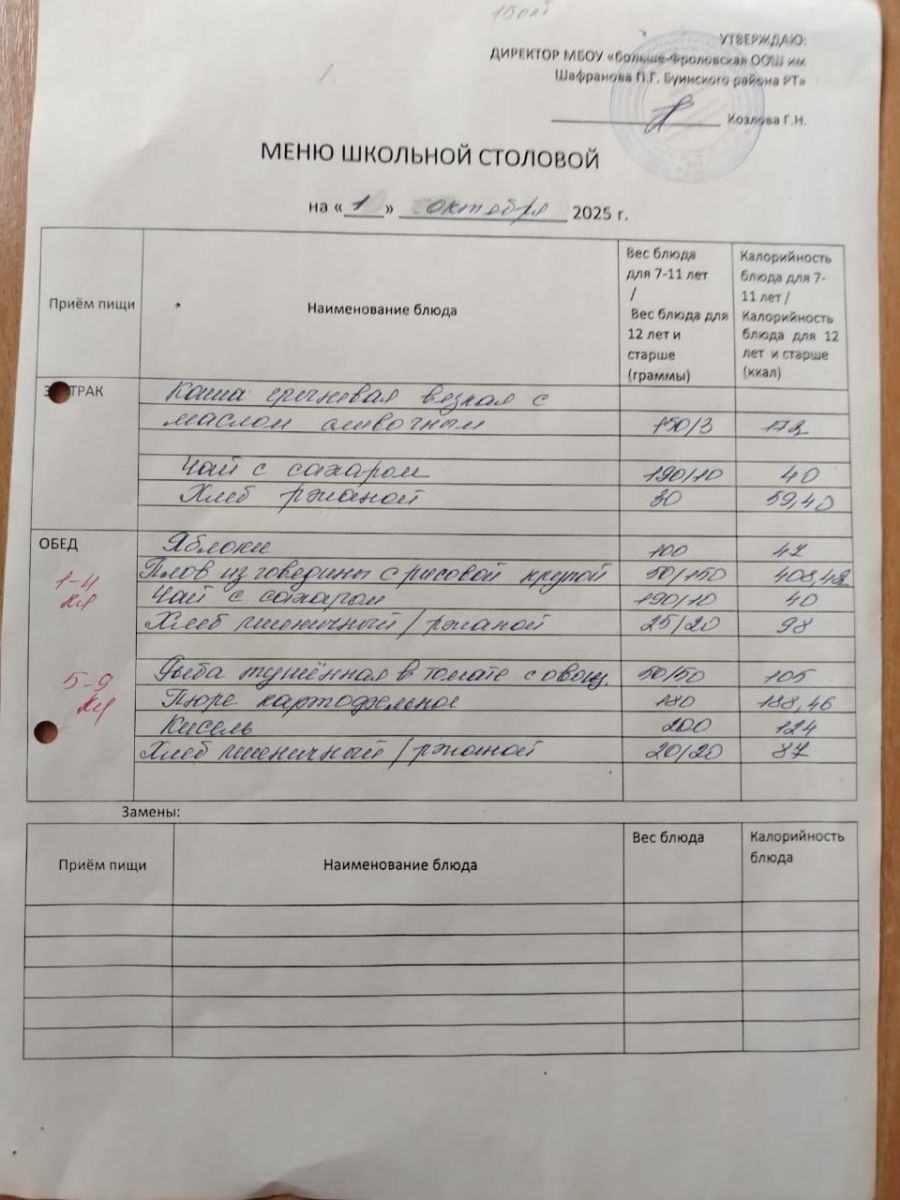 15 окт
1.
УТВЕРЖДАЮ:
ДИРЕКТОР МБОУ «Больше-Фроловская ООШ им
Шафранова П.Г. Буинского района РТ»
Козлова Г.Н.
МЕНЮ ШКОЛЬНОЙ СТОЛОВОЙ
на « 1 » октября 2025 г.
Приём пищи
Наименование блюда
Вес блюда
для 7-11 лет
/
Вес блюда для
12 лет и
старше
(граммы)
Калорийность
блюда для 7-
11 лет /
Калорийность
блюда для 12
лет и старше
(ккал)
ЗАВТРАК
Каша гречневая вязкая с
маслом сливочным 150/3 172
Чай с сахаром 190/10 40
Хлеб ржаной 30 59,40
ОБЕД
Яблоки 100 47
1-4 кл
Плов из говядины с рисовой крупой 50/150 408,48
Чай с сахаром 190/10 40
Хлеб пшеничный/ржаной 25/20 98
5-9 кл
Рыба тушённая в томате с овощ. 50/50 105
Пюре картофельное 180 188,46
Кисель 200 124
Хлеб пшеничный/ржаной 20/20 87
Замены:
Приём пищи
Наименование блюда
Вес блюда
Калорийность
блюда